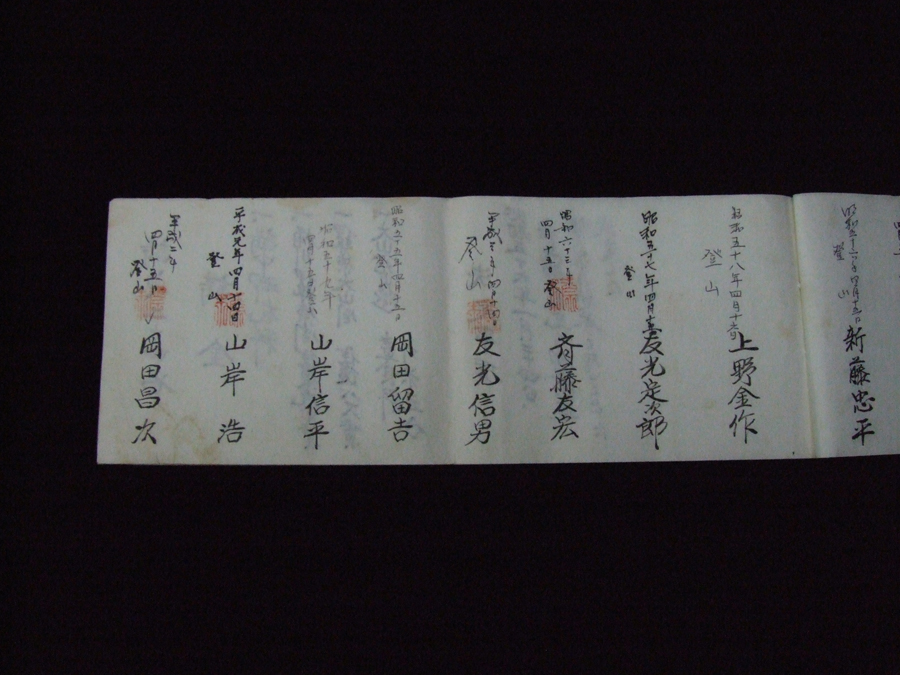 昭和五十六年四月十五日
登山
新藤忠平
昭和五十八年四月十五日
登山
上野金作
昭和五十七年四月十五日
登山
友光定次郎
昭和六十三年
四月十五日 登山
斉藤友宏
平成三年四月十四日
登山
友光信男
昭和五十五年四月十五日
登山
岡田留吉
昭和五十九年
四月十五日登山
山岸信平
平成元年四月十日
登山
山岸浩
平成二年
四月十五日
登山
岡田昌次